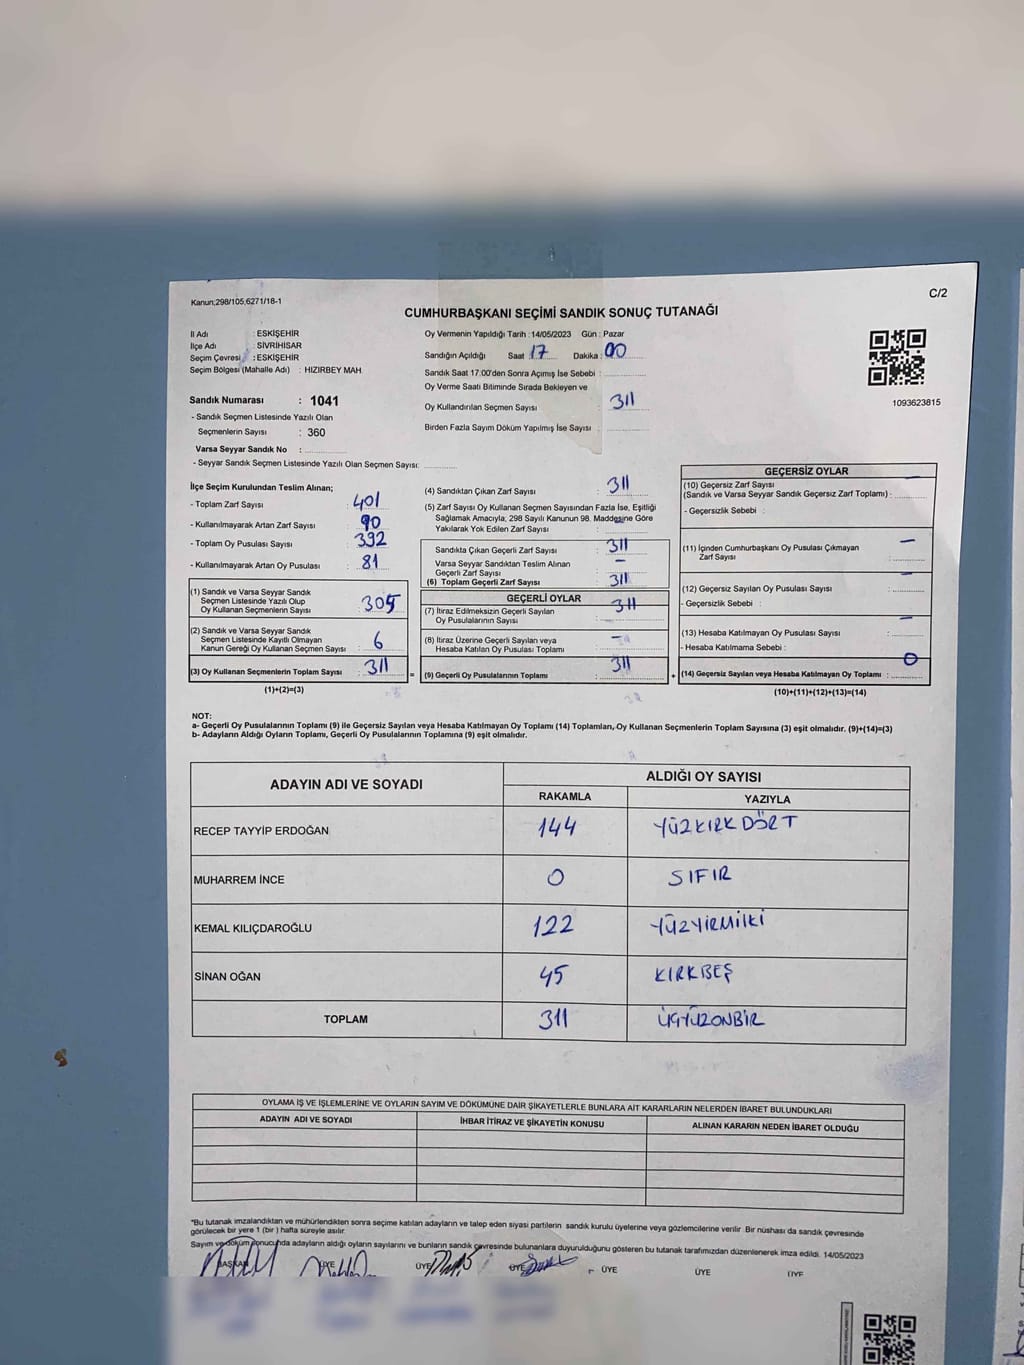 C/2
Kanun;298/105,6271/18-1
CUMHURBAŞKANI SEÇİMİ SANDIK SONUÇ TUTANAĞI
İl Adı : ESKİŞEHİR
İlçe Adı : SİVRİHİSAR
Seçim Çevresi : ESKİŞEHİR
Seçim Bölgesi (Mahalle Adı) : HIZIRBEY MAH.
Sandık Numarası : 1041
- Sandık Seçmen Listesinde Yazılı Olan
Seçmenlerin Sayısı : 360
Varsa Seyyar Sandık No :
- Seyyar Sandık Seçmen Listesinde Yazılı Olan Seçmen Sayısı:
Oy Vermenin Yapıldığı Tarih : 14/05/2023 Gün : Pazar
Sandığın Açıldığı Saat 17 Dakika : 00
Sandık Saat 17.00'den Sonra Açımış İse Sebebi :
Oy Verme Saati Bitiminde Sırada Bekleyen ve
Oy Kullandırılan Seçmen Sayısı : 311
Birden Fazla Sayım Döküm Yapılmış İse Sayısı :
1093623815
İlçe Seçim Kurulundan Teslim Alınan;
- Toplam Zarf Sayısı : 401
- Kullanılmayarak Artan Zarf Sayısı : 90
- Toplam Oy Pusulası Sayısı : 392
- Kullanılmayarak Artan Oy Pusulası : 81
(1) Sandık ve Varsa Seyyar Sandık
Seçmen Listesinde Yazılı Olup
Oy Kullanan Seçmenlerin Sayısı : 305
(2) Sandık ve Varsa Seyyar Sandık
Seçmen Listesinde Kayıtlı Olmayan
Kanun Gereği Oy Kullanan Seçmen Sayısı : 6
(3) Oy Kullanan Seçmenlerin Toplam Sayısı : 311
(1)+(2)=(3)
(4) Sandıktan Çıkan Zarf Sayısı : 311
(5) Zarf Sayısı Oy Kullanan Seçmen Sayısından Fazla İse, Eşitliği
Sağlamak Amacıyla; 298 Sayılı Kanunun 98. Maddesine Göre
Yakılarak Yok Edilen Zarf Sayısı : 
Sandıkta Çıkan Geçerli Zarf Sayısı : 311
Varsa Seyyar Sandıktan Teslim Alınan
Geçerli Zarf Sayısı : –
(6) Toplam Geçerli Zarf Sayısı : 311
GEÇERLİ OYLAR
(7) İtiraz Edilmeksizin Geçerli Sayılan
Oy Pusulalarının Sayısı : 311
(8) İtiraz Üzerine Geçerli Sayılan veya
Hesaba Katılan Oy Pusulası Toplamı : –
= (9) Geçerli Oy Pusulalarının Toplamı : 311
GEÇERSİZ OYLAR
(10) Geçersiz Zarf Sayısı
(Sandık ve Varsa Seyyar Sandık Geçersiz Zarf Toplamı) : –
- Geçersizlik Sebebi :
(11) İçinden Cumhurbaşkanı Oy Pusulası Çıkmayan
Zarf Sayısı : –
(12) Geçersiz Sayılan Oy Pusulası Sayısı : –
- Geçersizlik Sebebi :
(13) Hesaba Katılmayan Oy Pusulası Sayısı : –
- Hesaba Katılmama Sebebi :
+ (14) Geçersiz Sayılan veya Hesaba Katılmayan Oy Toplamı : 0
(10)+(11)+(12)+(13)=(14)
NOT:
a- Geçerli Oy Pusulalarının Toplamı (9) ile Geçersiz Sayılan veya Hesaba Katılmayan Oy Toplamı (14) Toplamları, Oy Kullanan Seçmenlerin Toplam Sayısına (3) eşit olmalıdır. (9)+(14)=(3)
b- Adayların Aldığı Oyların Toplamı, Geçerli Oy Pusulalarının Toplamına (9) eşit olmalıdır.
ADAYIN ADI VE SOYADI ALDIĞI OY SAYISI
RAKAMLA YAZIYLA
RECEP TAYYİP ERDOĞAN 144 YÜZKIRKDÖRT
MUHARREM İNCE 0 SIFIR
KEMAL KILIÇDAROĞLU 122 YÜZYİRMİİKİ
SİNAN OĞAN 45 KIRKBEŞ
TOPLAM 311 ÜÇYÜZONBİR
OYLAMA İŞ VE İŞLEMLERİNE VE OYLARIN SAYIM VE DÖKÜMÜNE DAİR ŞİKAYETLERLE BUNLARA AİT KARARLARIN NELERDEN İBARET BULUNDUKLARI
ADAYIN ADI VE SOYADI İHBAR İTİRAZ VE ŞİKAYETİN KONUSU ALINAN KARARIN NEDEN İBARET OLDUĞU
*Bu tutanak imzalandıktan ve mühürlendikten sonra seçime katılan adayların ve talep eden siyasi partilerin sandık kurulu üyelerine veya gözlemcilerine verilir. Bir nüshası da sandık çevresinde
görülecek bir yere 1 (bir) hafta süreyle asılır.
Sayım ve döküm sonucunda adayların aldığı oyların sayılarını ve bunların sandık çevresinde bulunanlara duyurulduğunu gösteren bu tutanak tarafımızdan düzenlenerek imza edildi. 14/05/2023
BAŞKAN ÜYE ÜYE ÜYE ÜYE ÜYE ÜYE